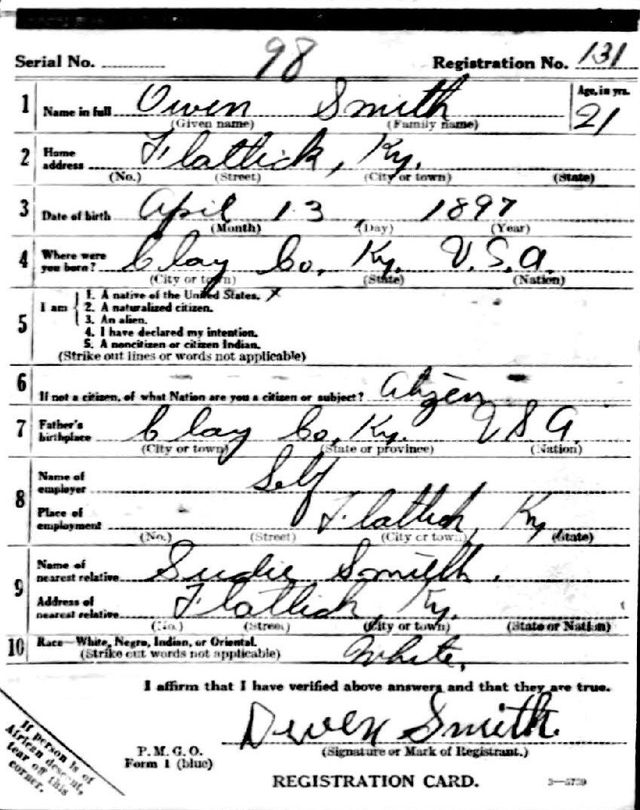 Serial No. 98 Registration No. 131
1 Name in full Owen Smith Age, in yrs. 21
(Given name) (Family name)
2 Home address Flatlick, Ky.
(No.) (Street) (City or town) (State)
3 Date of birth April 13, 1897
(Month) (Day) (Year)
4 Where were you born? Clay Co, Ky. U.S.A.
(City or town) (State) (Nation)
5 I am
1. A native of the United States. x
2. A naturalized citizen.
3. An alien.
4. I have declared my intention.
5. A noncitizen or citizen Indian.
(Strike out lines or words not applicable)
6 If not a citizen, of what Nation are you a citizen or subject?
7 Father's birthplace Clay Co, Ky. U S A.
(City or town) (State or province) (Nation)
8 Name of employer Self
Place of employment Flatlick, Ky
(No.) (Street) (City or town) (State)
9 Name of nearest relative Sudie Smith.
Address of nearest relative Flatlick, Ky.
(No.) (Street) (City or town) (State or Nation)
10 Race—White, Negro, Indian, or Oriental. White.
(Strike out words not applicable)
I affirm that I have verified above answers and that they are true.
Owen Smith
P. M. G. O. (Signature or Mark of Registrant.)
Form 1 (blue)
REGISTRATION CARD.
If person is of
African descent,
tear off this
corner.